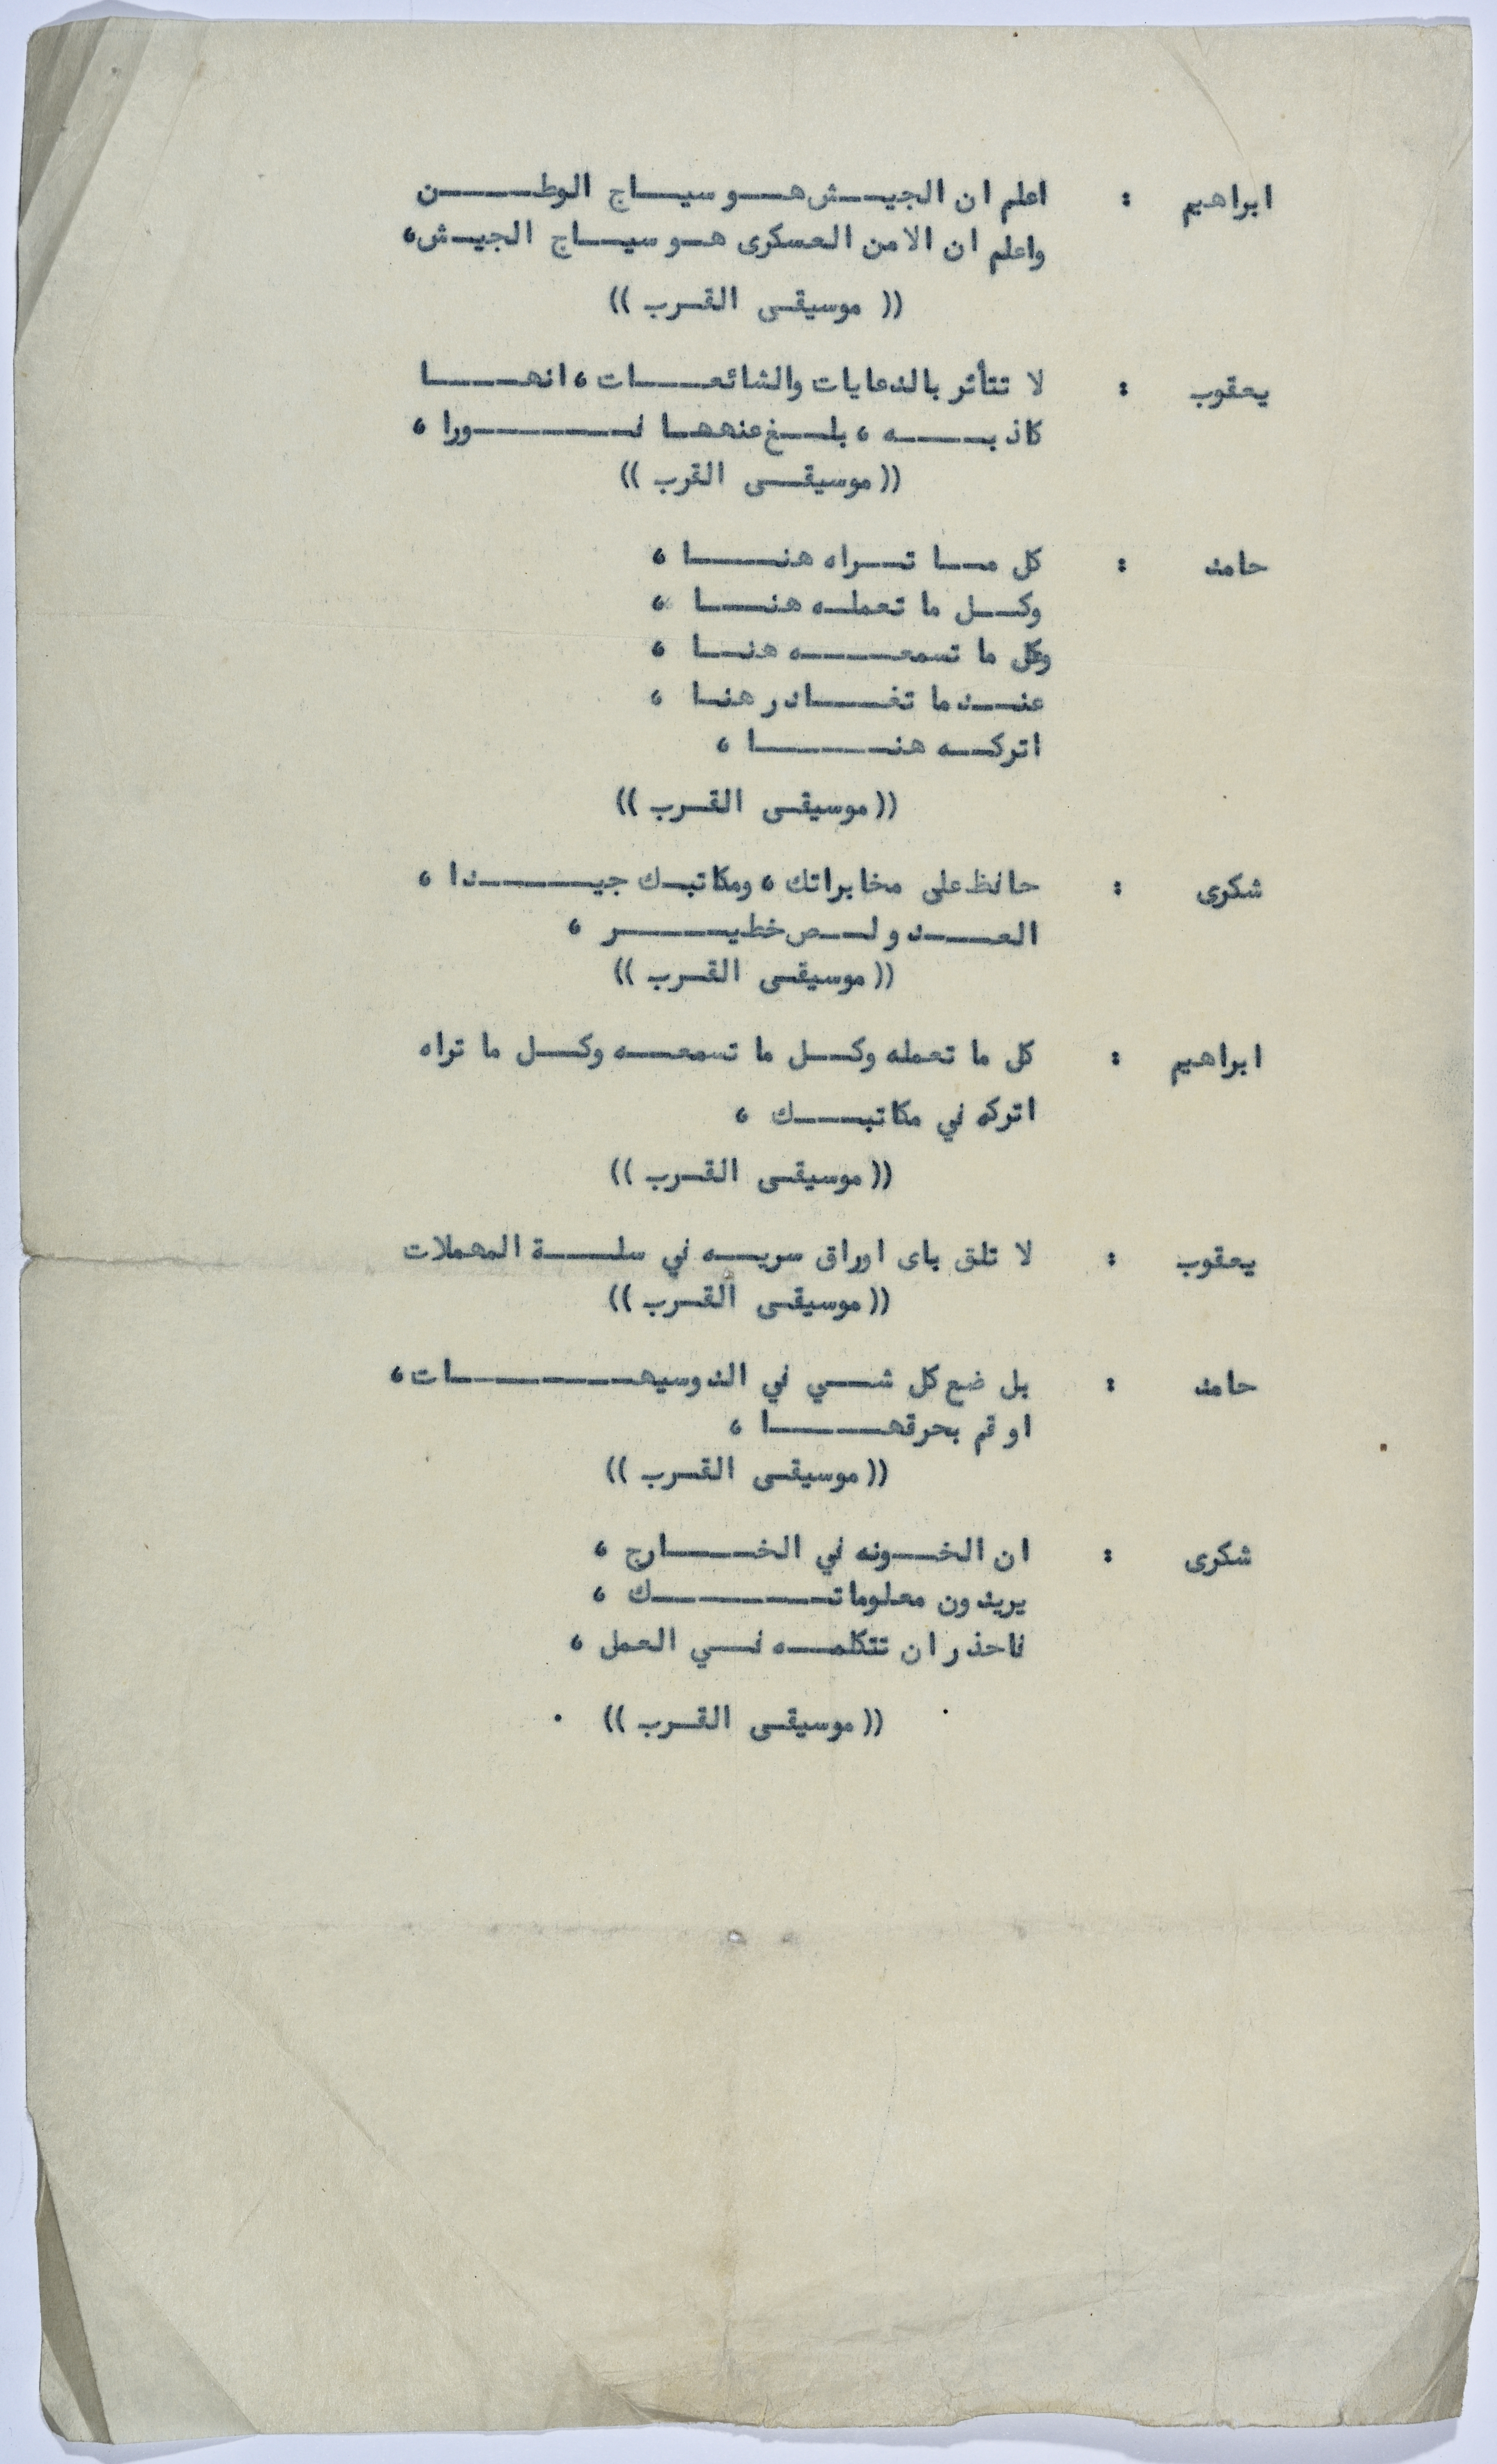 ابراهيم : اعلم ان الجيش هو سياج الوطن
واعلم ان الامن العسكرى هو سياج الجيش،
(( موسيقى القرب ))
يعقوب : لا تتأثر بالدعايات والشائعات، انها
كاذبه، بلغ عنهها فورا،
(( موسيقى القرب ))
حامد : كل ما تراه هنا،
وكل ما تعمله هنا،
وكل ما تسمعه هنا،
عندما تغادر هنا،
اتركه هنا،
(( موسيقى القرب ))
شكرى : حافظ على مخابراتك، ومكاتبك جيدا،
العدو لص خطير،
(( موسيقى القرب ))
ابراهيم : كل ما تعمله وكل ما تسمعه وكل ما تراه
اتركه في مكاتبك،
(( موسيقى القرب ))
يعقوب : لا تلق باى اوراق سريه في سلة المهملات
(( موسيقى القرب ))
حامد : بل ضع كل شي في الدوسيهات،
او قم بحرقها،
(( موسيقى القرب ))
شكرى : ان الخونه في الخارج،
يريدون معلوماتك،
فاحذر ان تتكلمه في العمل،
(( موسيقى القرب )) .